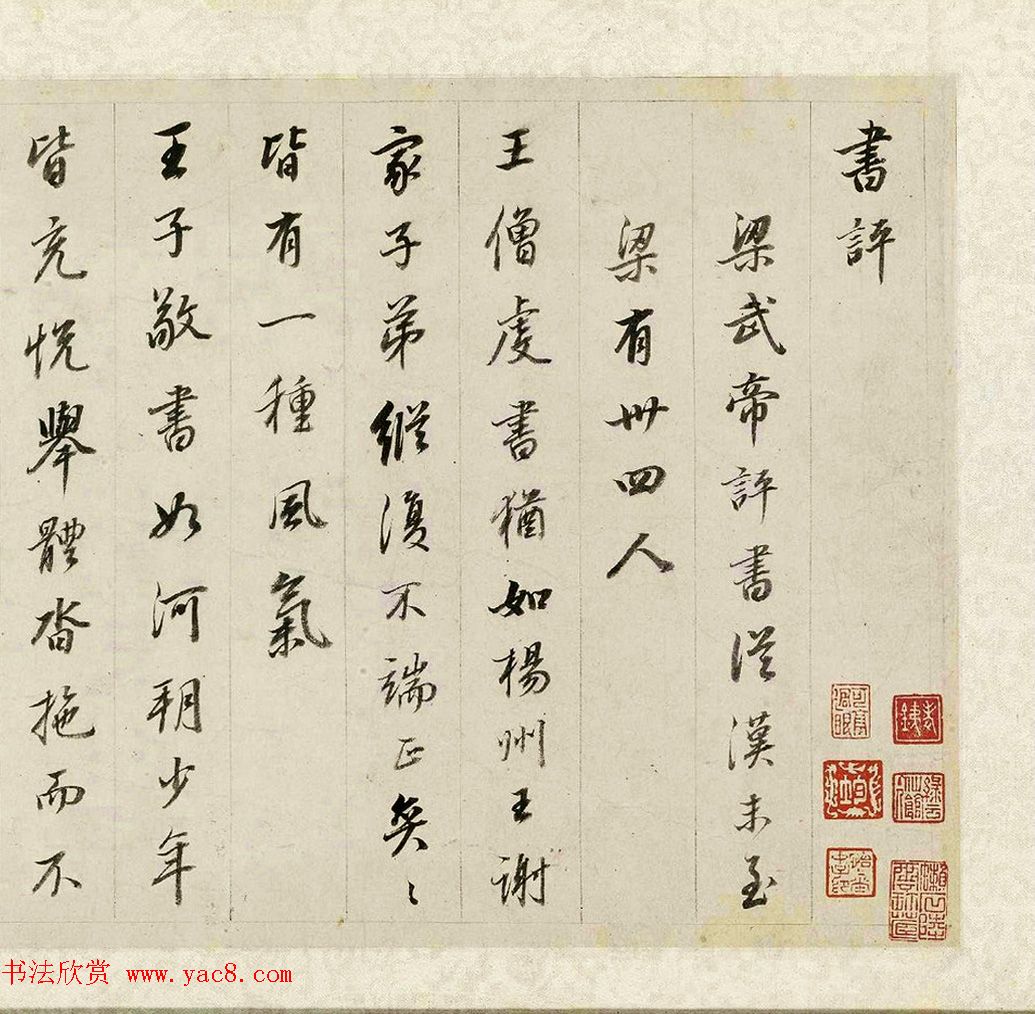 書評
梁武帝評書從漢末至
梁有卅四人
王僧虔書猶如楊州王謝
家子弟縱復不端正奕〻
皆有一種風氣
王子敬書如河朝少年
皆充悅舉體沓拖而不
书法欣赏 www.yac8.com